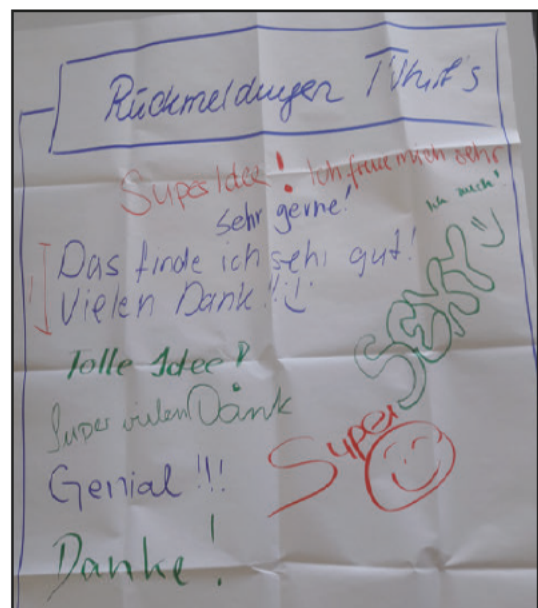 Rückmeldungen TVhit's
Super Idee! Ich freue mich sehr
Ich auch!
Sehr gerne!
Das finde ich sehr gut!
Vielen Dank!!
SEHR
Tolle Idee!
Super vielen Dank
Super
Genial!!!
Danke!